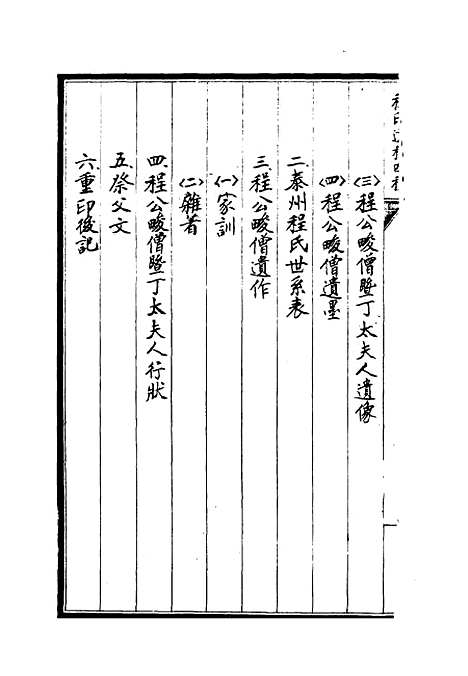 〈三〉程公畯僧暨丁太夫人遺像
〈四〉程公畯僧遺墨
二、泰州程氏世系表
三、程公畯僧遺作
〈一〉家訓
〈二〉雜著
四、程公畯僧暨丁太夫人行狀
五、祭父文
六、重印後記